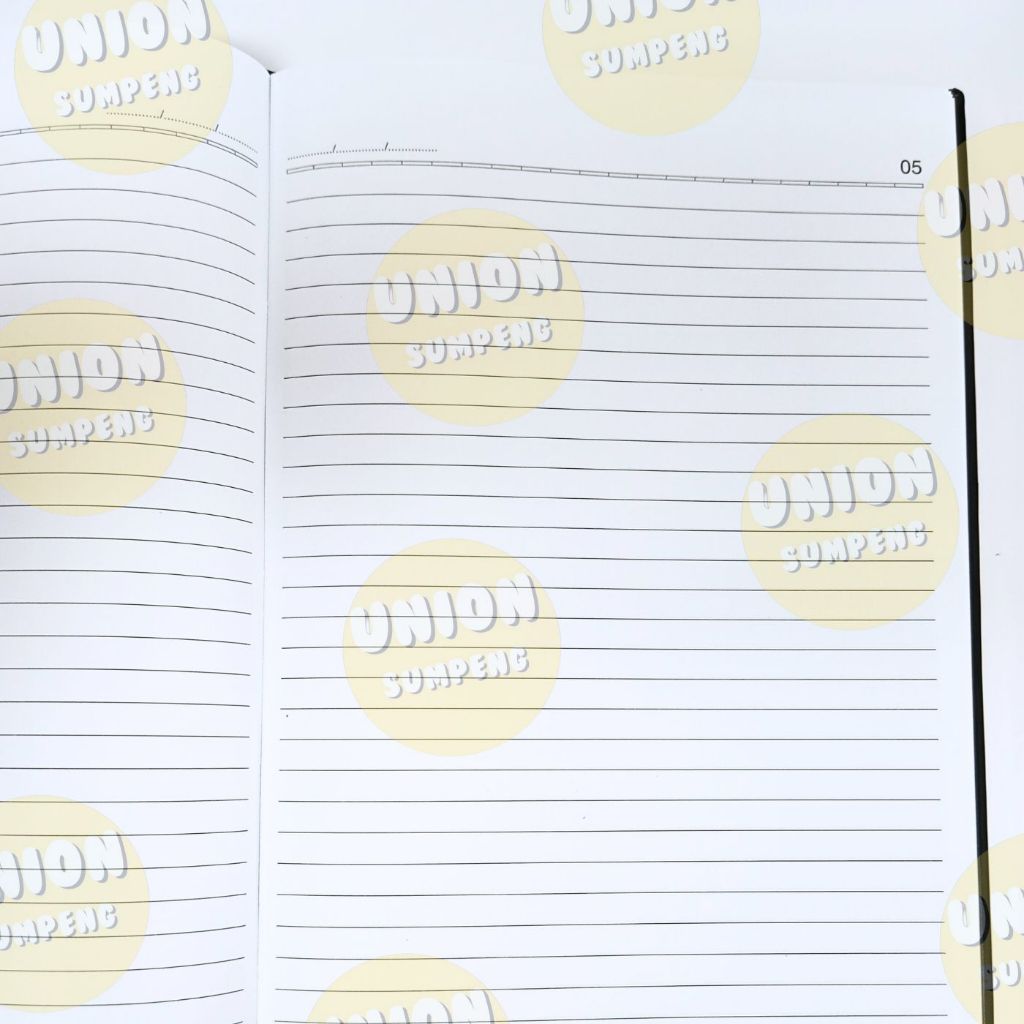 UNION
SUMPENG
UNION
SUMPENG
05
UNION
SUMPENG
UNION
SUMPENG
UNION
SUMPENG
UNION
SUMPENG
UNION
SUMPENG
UNION
SUMPENG
UNION